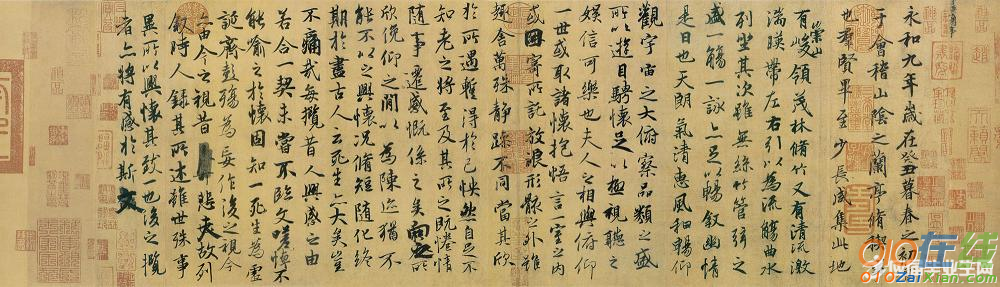 永和九年歲在癸丑暮春之初
于會稽山陰之蘭亭脩稧
也羣賢畢至少長咸集此地
有崇山峻領茂林脩竹又有清流激
湍暎帶左右引以為流觴曲水
列坐其次雖無絲竹管弦之
盛一觴一詠亦足以暢敘幽情
是日也天朗氣清惠風和暢仰
觀宇宙之大俯察品類之盛
所以遊目騁懷足以極視聽之
娛信可樂也夫人之相與俯仰
一世或取諸懷抱悟言一室之內
或因寄所託放浪形骸之外雖
趣舍萬殊靜躁不同當其欣
於所遇蹔得於己怏然自足不
知老之將至及其所之既惓情
隨事遷感慨係之矣向之所
欣俛仰之間以為陳迹猶不
能不以之興懷況脩短隨化終
期於盡古人云死生亦大矣豈
不痛哉每攬昔人興感之由
若合一契未嘗不臨文嗟悼不
能喻之於懷固知一死生為虛
誕齊彭殤為妄作後之視今
亦由今之視昔悲夫故列
敘時人錄其所述雖世殊事
異所以興懷其致一也後之攬
者亦將有感於斯文
010在线
010ZaiXian.com